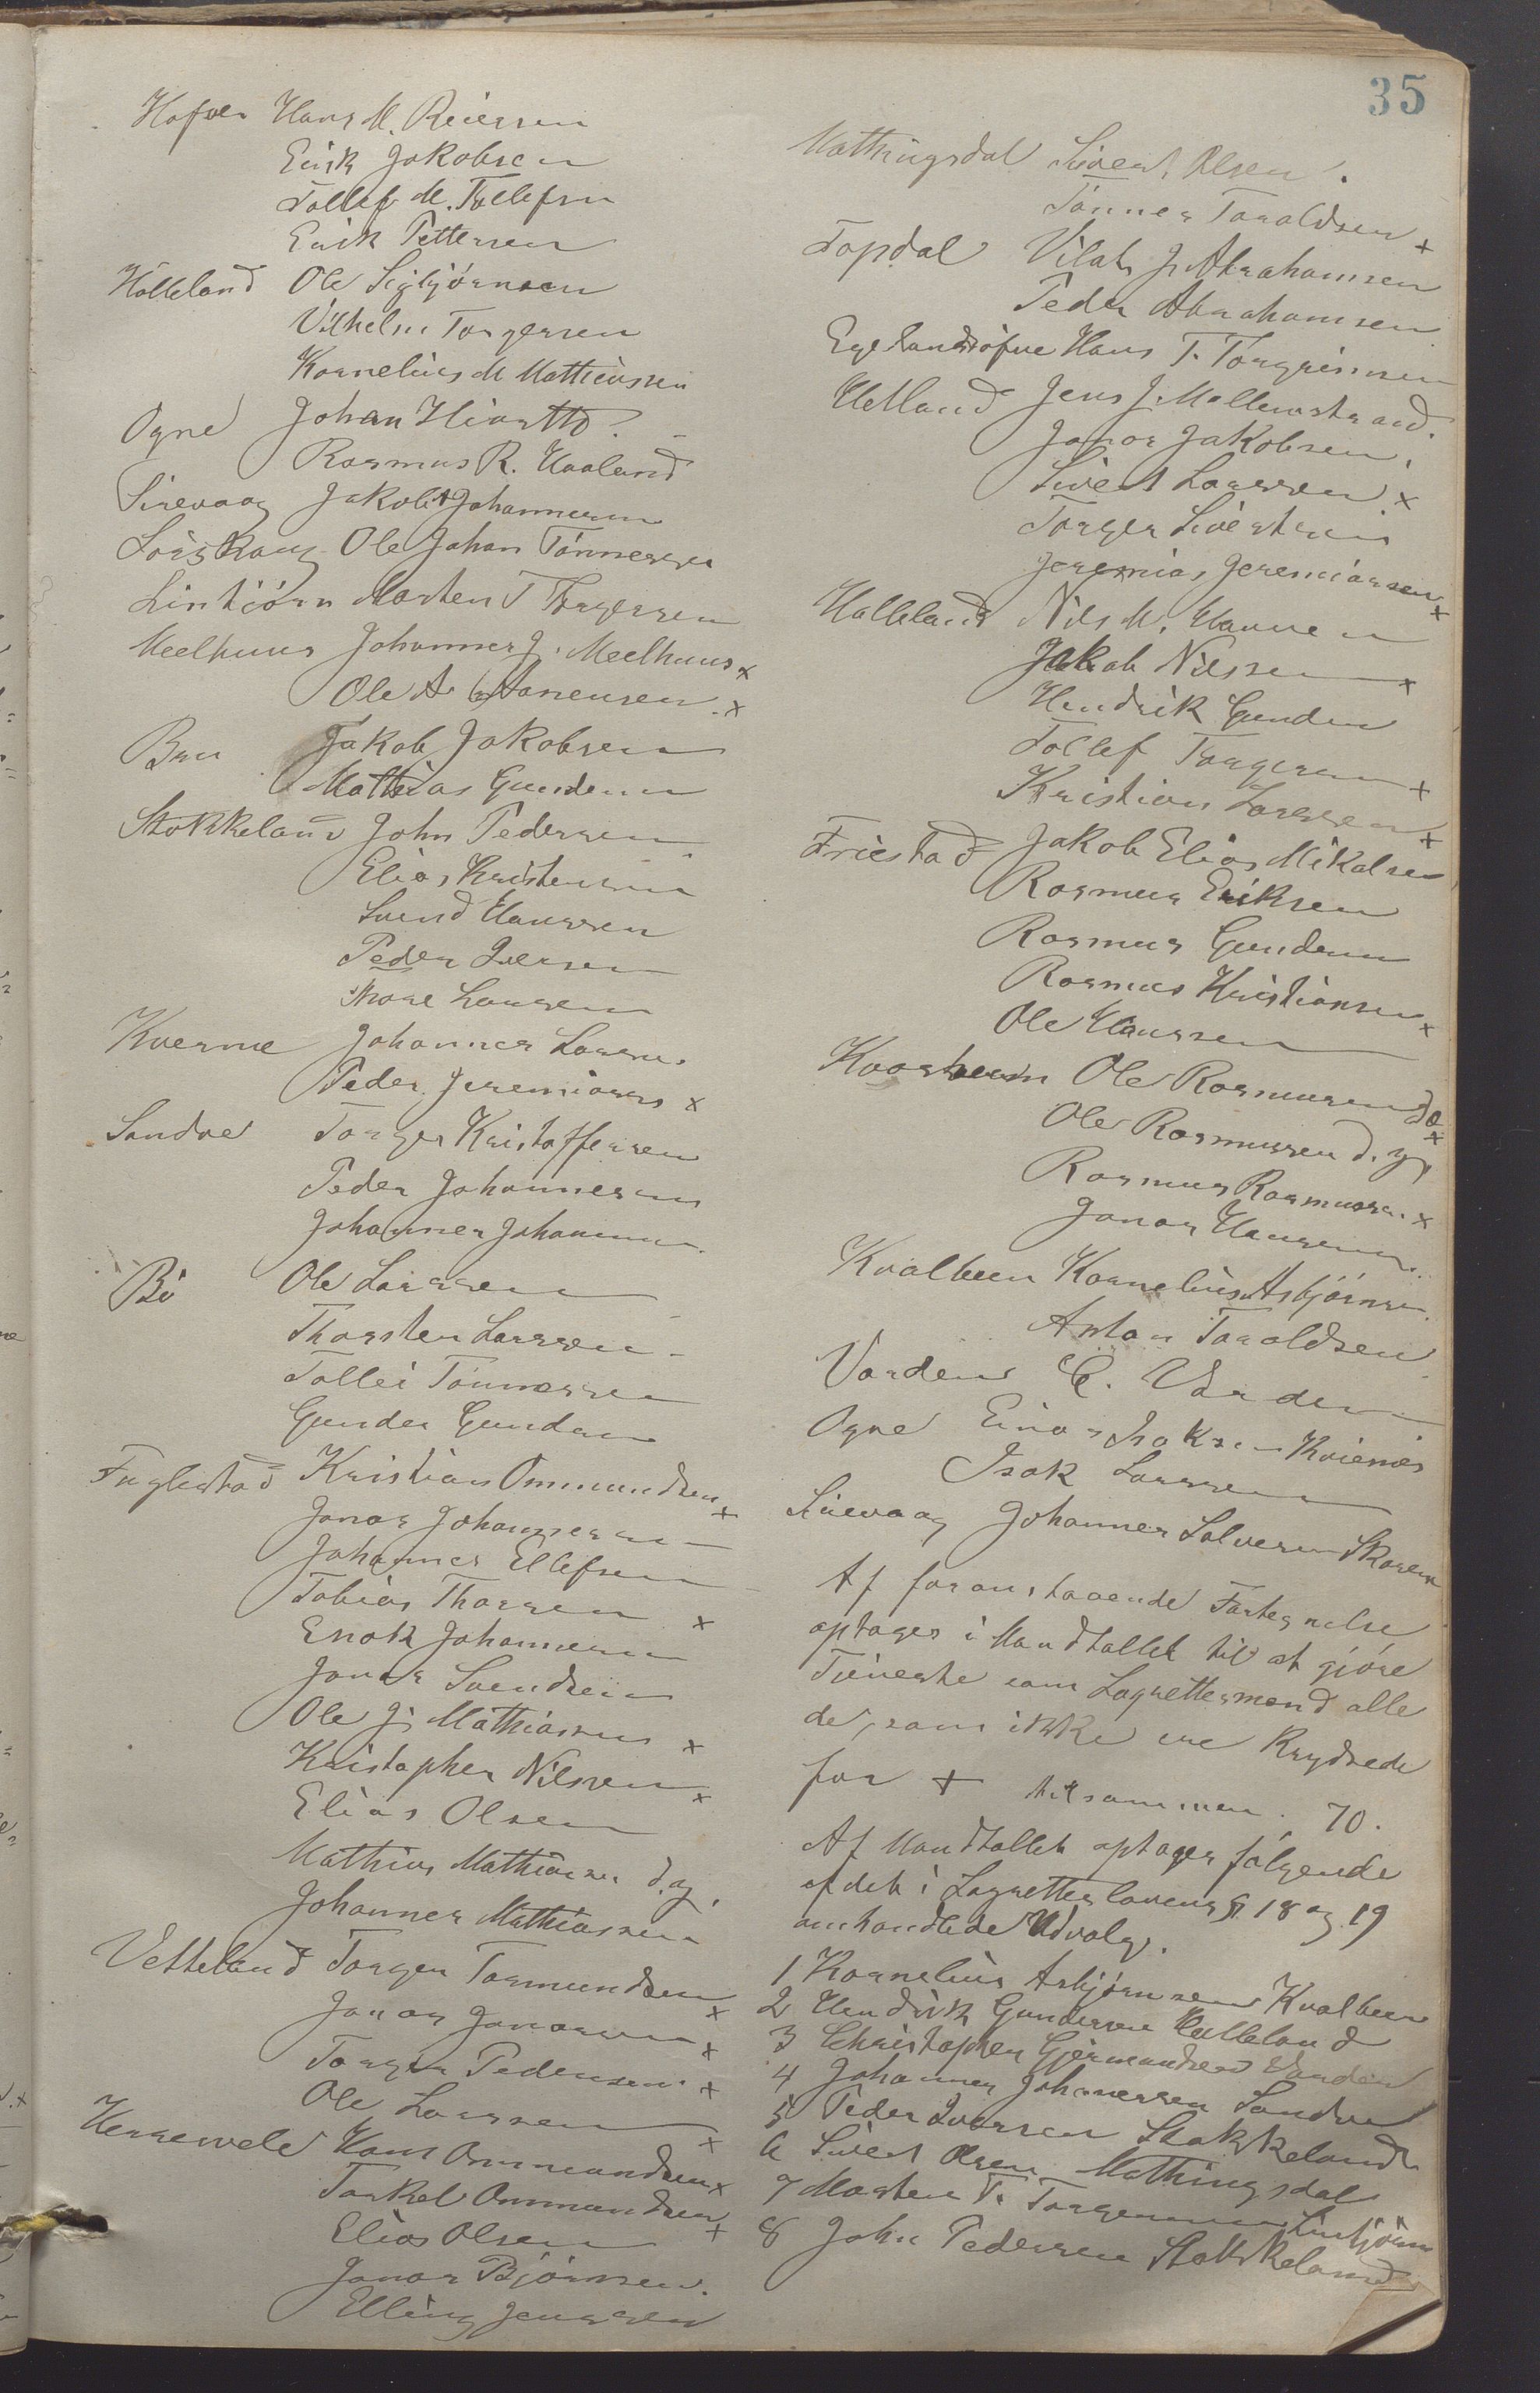 35
Hafve Hans M. Reiersen
Erik Jakobsen
Tollef M. Tollefsen
Erik Pettersen
Hölleland Ole Sigbjörnsen
Vilhelm Torgersen
Kornelius M Mathiassen
Ogne Johan Hiorth
Rasmus R. Haaland
Sirevaag Jakob A Johannesen
Ole Johan Tönnessen
Lintjörn Morten T Torgersen
Meelhuus Johannes J. Meelhuus x
Ole A. Aanensen x
Bru Jakob Jakobsen
Mathias Gundersen
Stokkeland John Pedersen
Elias Kristensen
Svend Hanssen
Peder Iversen
Thore Larsen
Kverme Johannes Larsen
Peder Jeremiassen x
Sandve Torger Kristoffersen
Peder Johannesen
Johannes Johannesen
Bö Ole Larssen
Thorsten Larssen
Tollei Tönnessen
Gunder Gundersen
Fuglestad Kristian Ommundsen x
Jonas Johannesen
Johannes Ellefsen
Tobias Thorsen x
Enok Johannesen
Jonas Svendsen
Ole J. Mathiassen x
Kristopher Nilssen x
Elias Olsen
Mathias Mathiassen d. y.
Johannes Mathiassen
Vetteland Torger Tormundsen x
Jonas Jonassen x
Torger Pedersen x
Ole Larssen x
Hans Ommundsen x
Torkel Ommundsen x
Elias Olsen
Jonas Björnsen
Elling Jenssen
Mathingsdal Sivert Olsen
Tönnes Taraldsen x
Topdal Vilats J. Abrahamsen
Peder Abrahamsen
Egelandsöfne Hans T. Torgrimsen
Hetland Jens J. Mellemstrand
Jonas Jakobsen
Sivert Larssen x
Torger Sivertsen
Jeremias Jeremiassen x
Halleland Nils M. Hansen
Jakob Nilssen x
Hendrik Gundersen
Tollef Torgersen x
Kristian Larssen x
Friestad Jakob Elias Mikalsen
Rasmus Eriksen
Rasmus Gundersen
Rasmus Kristiansen x
Ole Hanssen
Kvasheim Ole Rasmussen d. æ x
Ole Rasmussen d. y
Rasmus Rasmussen x
Jonas Hansen
Kvalbeen Kornelius Asbjörnsen
Anton Taraldsen
Varden C. Varden
Ogne Einar Isaksen Kvienes
Isak Larssen
Sirevaag Johannes Salvesen Skaren
Af foranstaaende Fortegnelse
optages i Mandtallet til at gjöre
Tjeneste som Lagrettesmænd alle
de, som ikke ere Krydsede
for + tilsammen. 70.
Af Mandtallet optages fölgende
af det i Lagretteslovens §§ 18 og 19
omhandlede Udvalg.
1 Kornelius Asbjörnsen Kvalbeen
2 Hendrik Gundersen Halleland
3 Christopher Gjermundsen Varden
4 Johannes Johannessen Sandve
5 Peder Iverssen Stokkeland
6 Sivert Olsen Mathingsdal
7 Morten T. Torgersen Lintjörn
8 John Pedersen Stokkeland